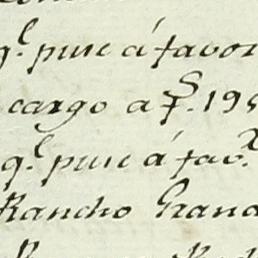 q.l puse á favor
cargo a f.s 195
q.l puse á fav.r
Rancho Grand